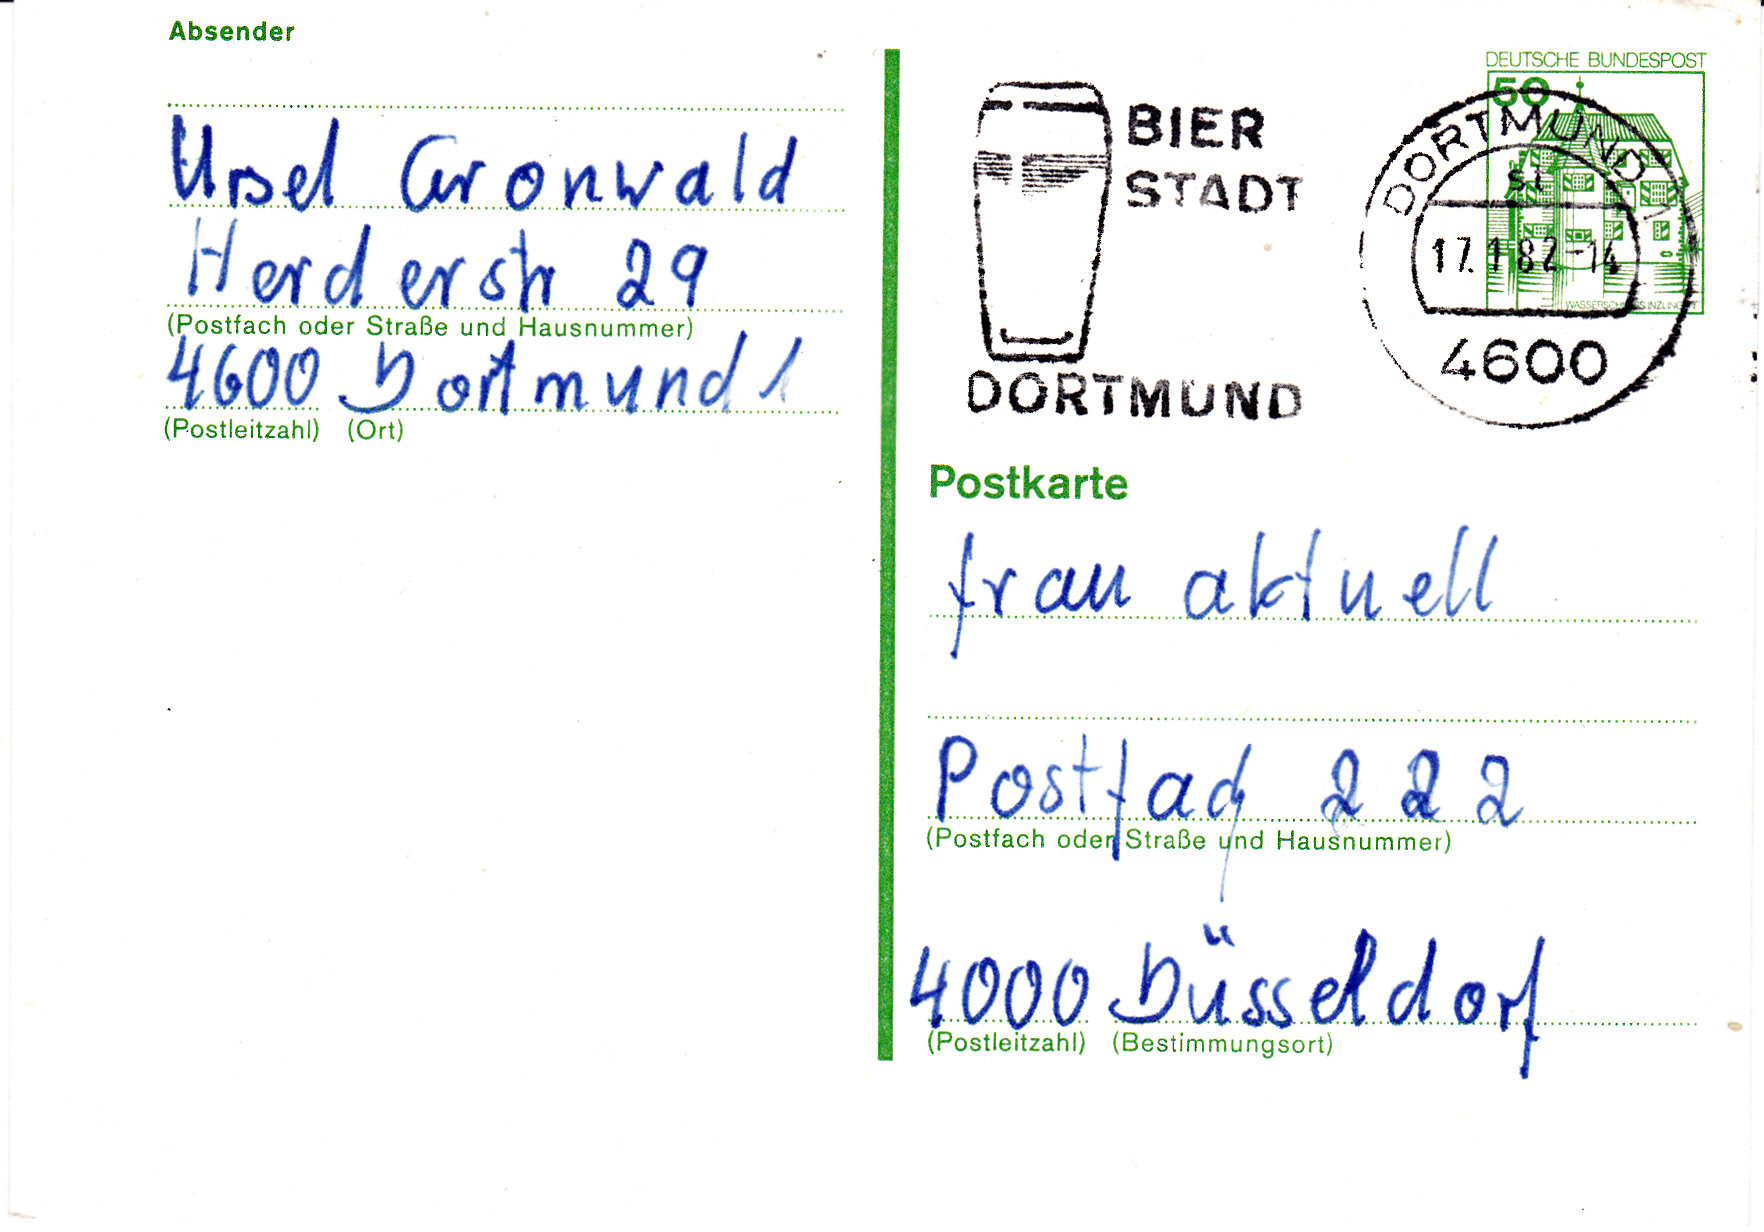 Absender
Ursel Gronwald
Herderstr 29
(Postfach oder Straße und Hausnummer)
4600 Dortmund 1
(Postleitzahl) (Ort)
BIER
STADT
DORTMUND
DEUTSCHE BUNDESPOST
50
WASSERSCHLOSS INZLINGEN
DORTMUND 1
17.1.82-14
4600
Postkarte
frau aktuell
Postfach 222
(Postfach oder Straße und Hausnummer)
4000 Düsseldorf
(Postleitzahl) (Bestimmungsort)